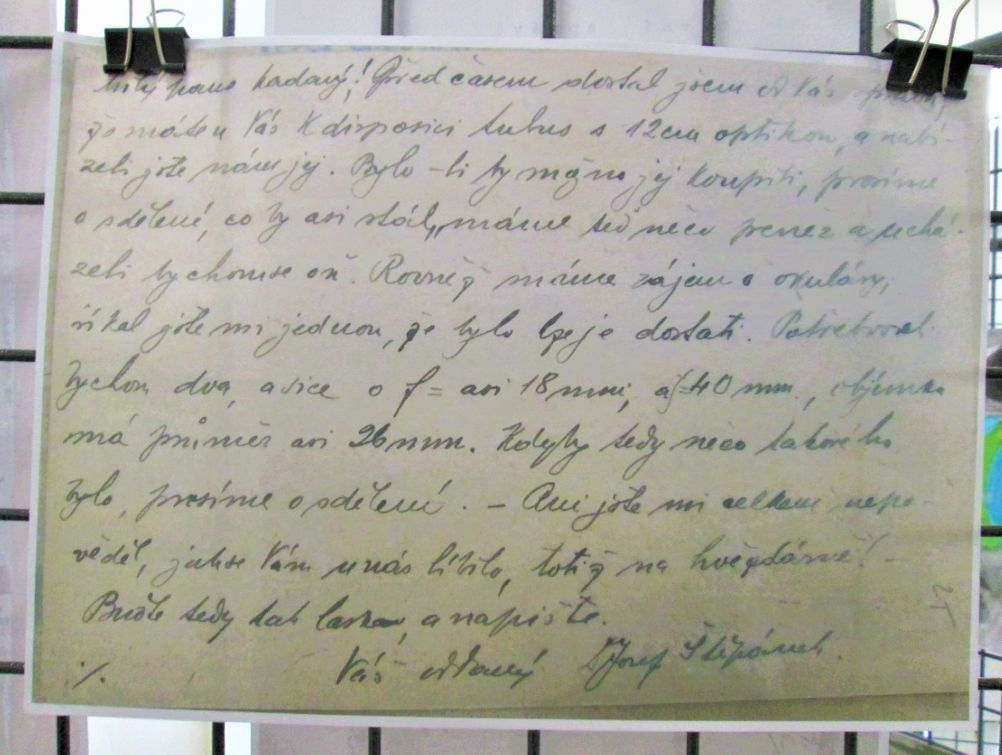 Milý pane Kadavý! Před časem dostal jsem od Vás zprávu,
že máte u Vás k disposici tubus s 12cm optikou, a nabí-
zeli jste nám jej. Bylo-li by možno jej koupiti, prosíme
o sdělení, co by asi stál, máme teď něco peněz a uchá-
zeli bychom se oň. Rovněž máme zájem o okuláry,
říkal jste mi jednou, že bylo lze je dostati. Potřeboval
bychom dva, a sice o f = asi 18 mm, a f=40 mm., objímka
má průměr asi 26 mm. Kdyby tedy něco takového
bylo, prosíme o sdělení. – Ani jste mi celkem nepo-
věděl, jak se Vám u nás líbilo, totiž na hvězdárně! –
Buďte tedy tak laskav, a napište.
Váš oddaný Josef Štěpánek.
./.